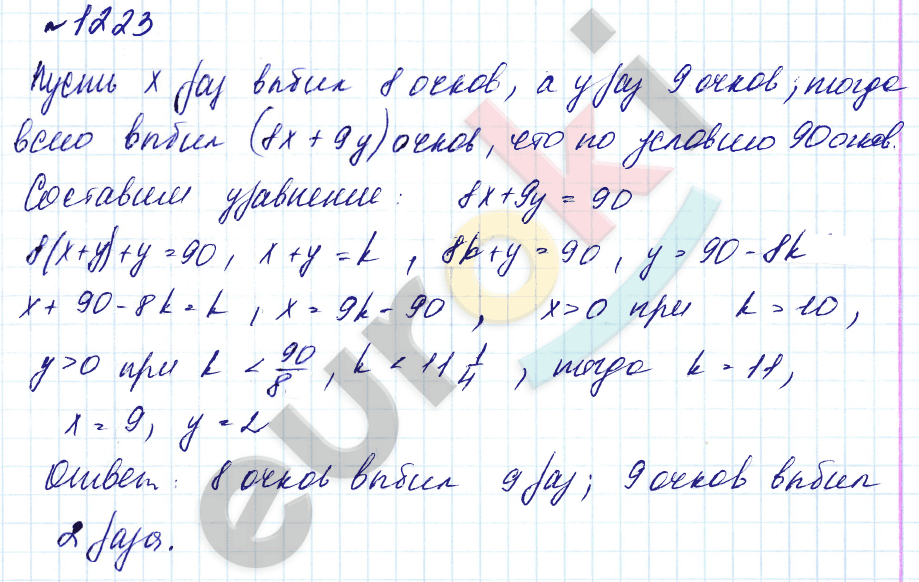 №1223
Пусть x раз выбил 8 очков, а y раз 9 очков, тогда
всего выбил (8x+9y) очков, что по условию 90 очков.
Составим уравнение: 8x+9y=90
8(x+y)+y=90, x+y=k, 8k+y=90, y=90-8k
x+90-8k=k, x=9k-90, x>0 при k>10,
y>0 при k<90/8, k<11 1/4, тогда k=11,
x=9, y=2
Ответ: 8 очков выбил 9 раз; 9 очков выбил
2 раза.
euroki